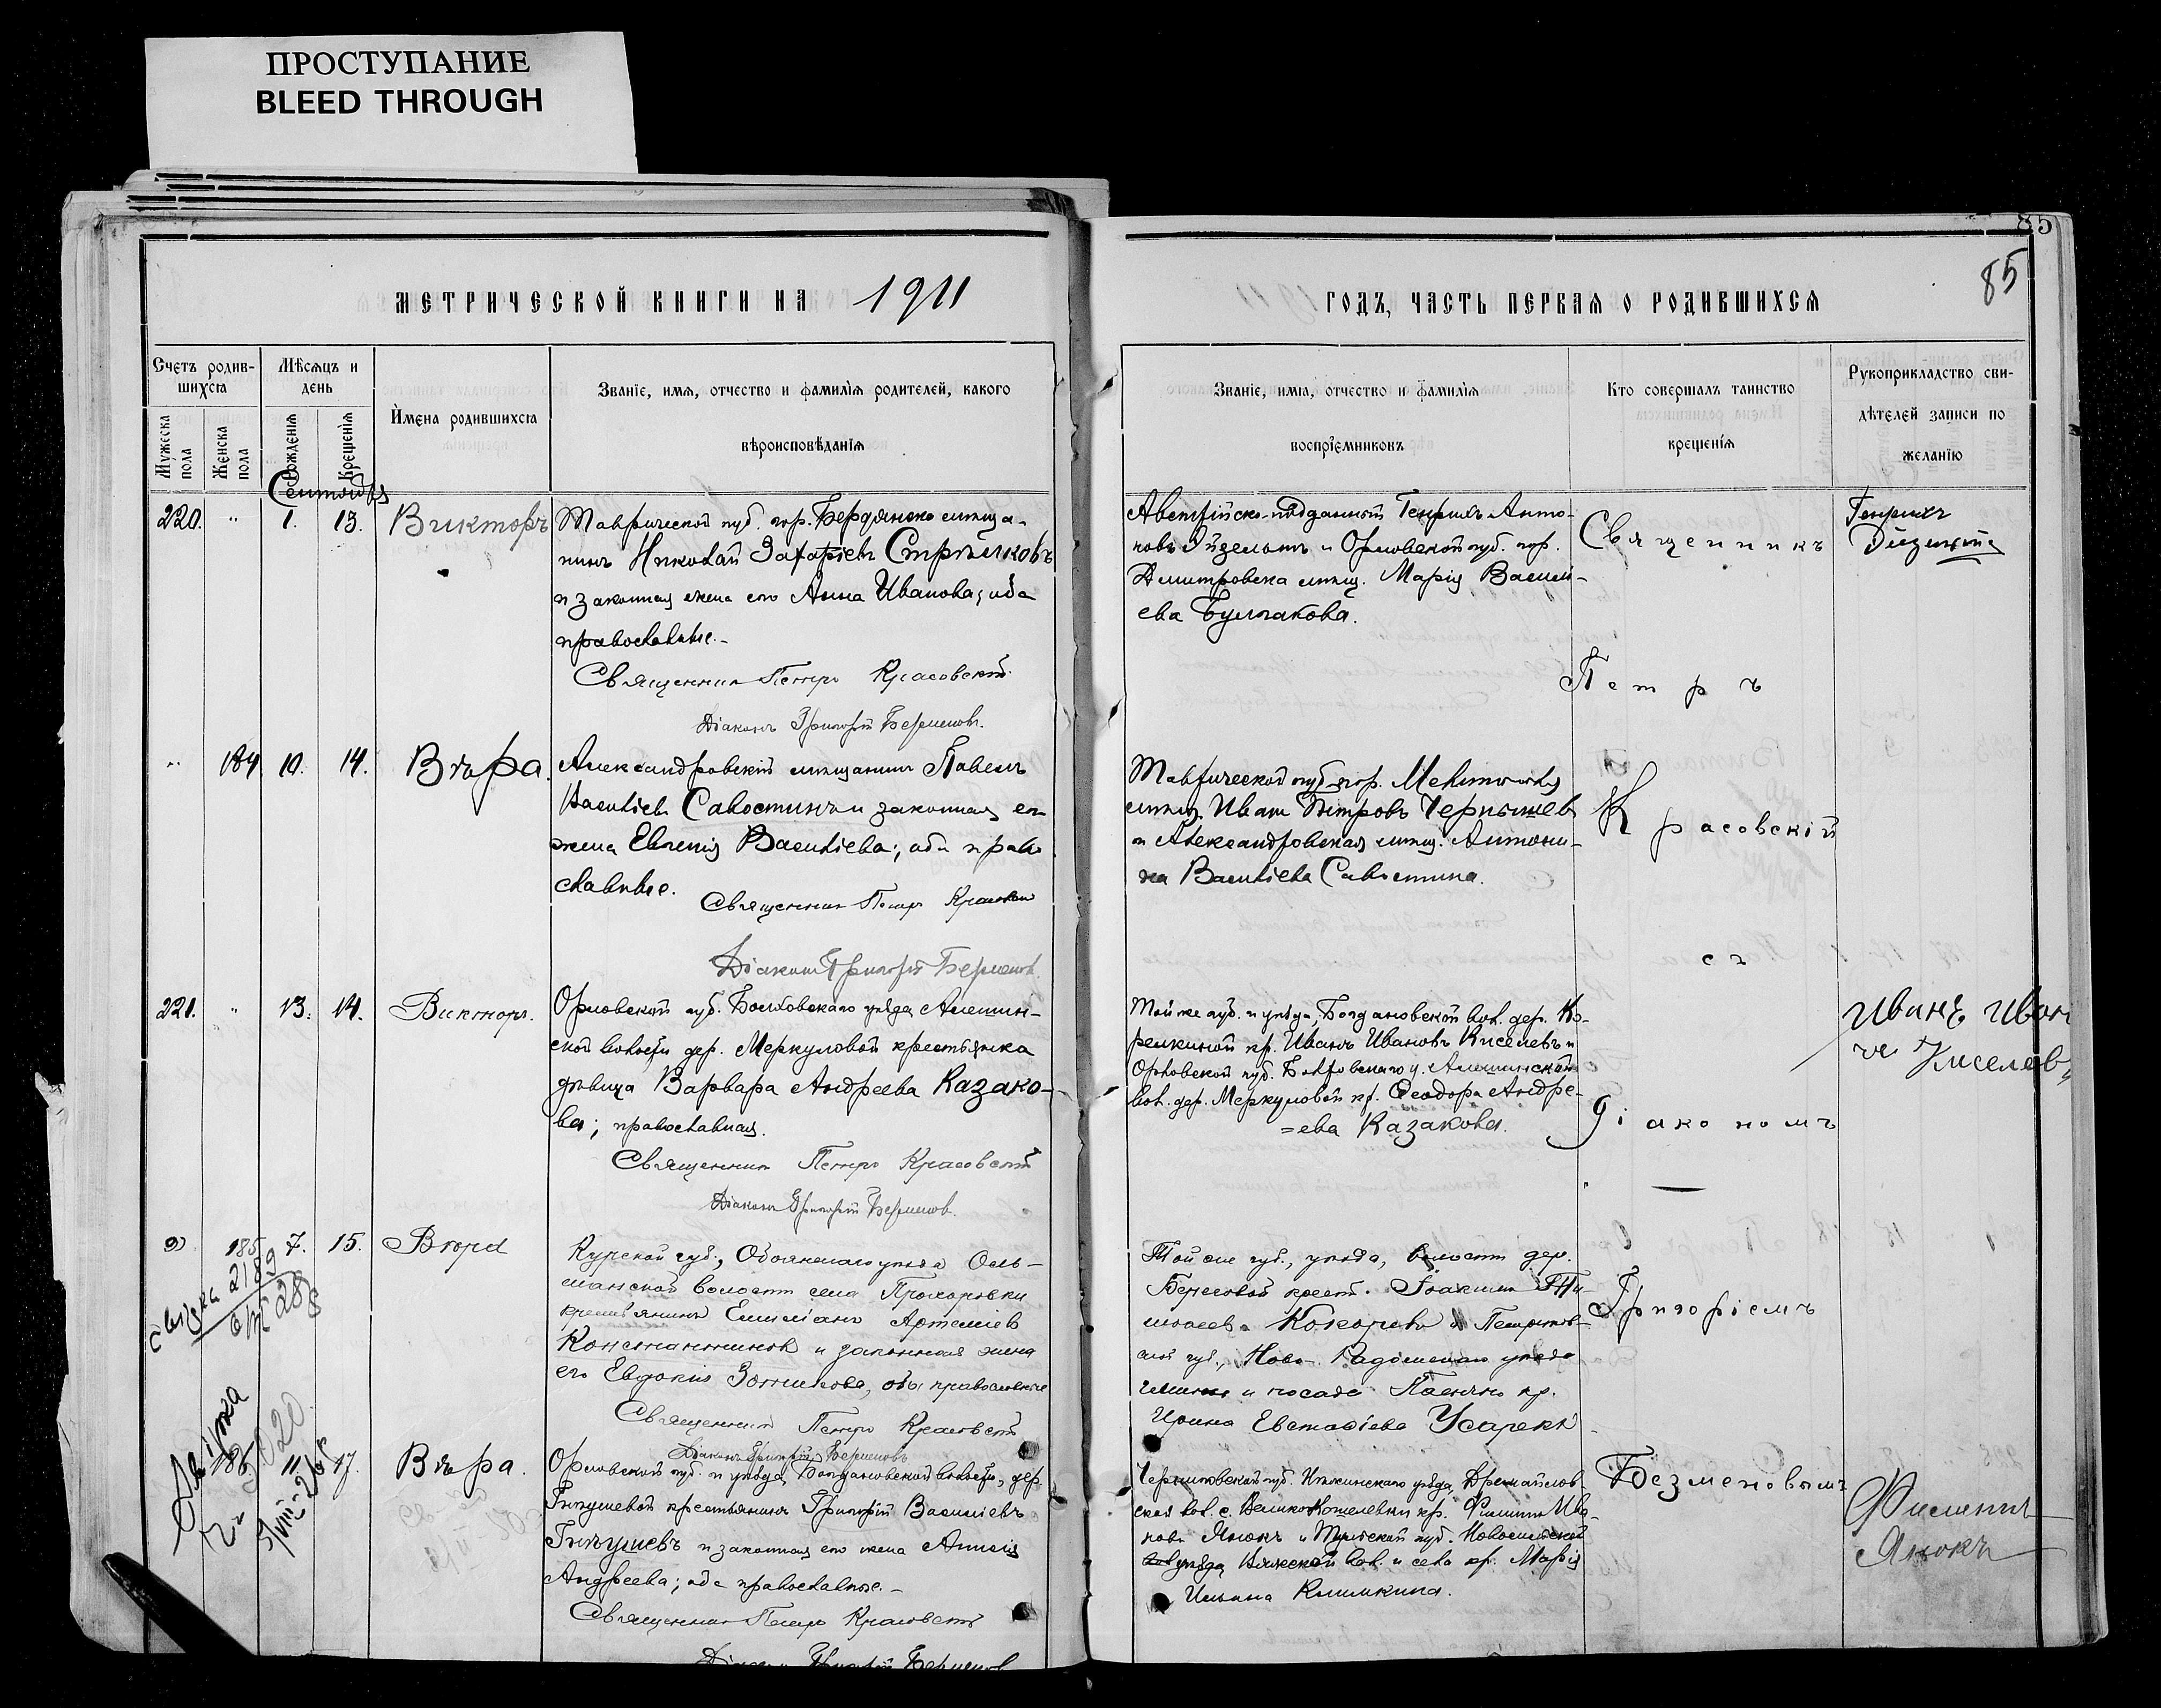 ПРОСТУПАНИЕ
BLEED THROUGH
85
85
МЕТРИЧЕСКОЙ КНИГИ НА 1911
ГОДЪ, ЧАСТЬ ПЕРВАЯ О РОДИВШИХСЯ
Счетъ родив-
шихся
Мужеска пола
Женска пола
Мѣсяцъ и
день
Рожденія
Крещенія
Имена родившихся
Званіе, имя, отчество и фамилія родителей, какого
вѣроисповѣданія
Званіе, имя, отчество и фамилія
воспріемниковъ
Кто совершалъ таинство
крещенія
Рукоприкладство сви-
дѣтелей записи по
желанію
Сентябрь
220. " 1. 13. Викторъ
Таврической губ. гор. Бердянска мѣща-
нинъ Николай Захаріевъ Стрѣлковъ
и законная жена его Анна Иванова; оба
православные.-
Священникъ Петръ Красовскій
Діаконъ Григорій Безменовъ.
Австрійско-подданный Генрихъ Анто-
новъ и Орловской губ. гор.
Дмитровска мѣщ. Марія Василь-
ева Булгакова.
Генрихъ
" 184 10. 14. Вѣра.
Александровскій мѣщанинъ Павелъ
Васильевъ Савостинъ и законная его
жена Евгенія Васильева; оба право-
славные.
Священникъ Петръ Красовскій
Діаконъ Григорій Безменовъ.
Таврической губ. гор. Мелитополя
мѣщ. Иванъ Петровъ Чернышевъ
и Александровская мѣщ. Антони-
на Васильева Савостина.
221. " 13. 14. Викторъ.
Орловской губ. Болховскаго уѣзда Алешин-
ской волости дер. Меркуловой крестьянка
дѣвица Варвара Андреева Казако-
ва; православная.
Священникъ Петръ Красовскій
Діаконъ Григорій Безменовъ.
Той же губ. и уѣзда, Богдановской вол. дер. Ко-
релкиной кр. Иванъ Ивановъ Киселевъ и
Орловской губ. Болховскаго у. Алешинской
вол. дер. Меркуловой кр. Ѳеодора Андре-
=ева Казакова.
Иванъ Иван
Киселевъ
" 185 7. 15. Вѣра
Курской губ., Обоянскаго уѣзда Оль-
шанской волости села Прохоровки
крестьянинъ Емиліанъ Артеміевъ
Константиновъ и законная жена
его Евдокія Зотикова, оба православные
Священникъ Петръ Красовскій
Діаконъ Григорій Безменовъ
Той же губ., уѣзда, волости дер.
Березовой крест. Іоакимъ Ти-
моѳеевъ Кокоревъ и Петроков-
ской губ., Ново-Радомскаго уѣзда
гмины и посада кр.
Ирина Евстафіева
186 11 17. Вѣра.
Орловской губ. и уѣзда, Богдановской волости, дер.
крестьянинъ Григорій Васильевъ
и законная его жена
Андреева; оба православные.-
Священникъ Петръ Красовскій
Діаконъ Григорій Безменовъ
Черниговской губ. Нѣжинскаго уѣзда,
вол. с. кр. Филиппъ Ива-
новъ Янюкъ и Тульской губ. Новосильскаго
уѣзда вол. и села кр. Марія
Ильина Климкина.
Филиппъ
Янюкъ
Священникъ
Петръ
Красовскій
съ
діакономъ
Григоріемъ
Безменовымъ